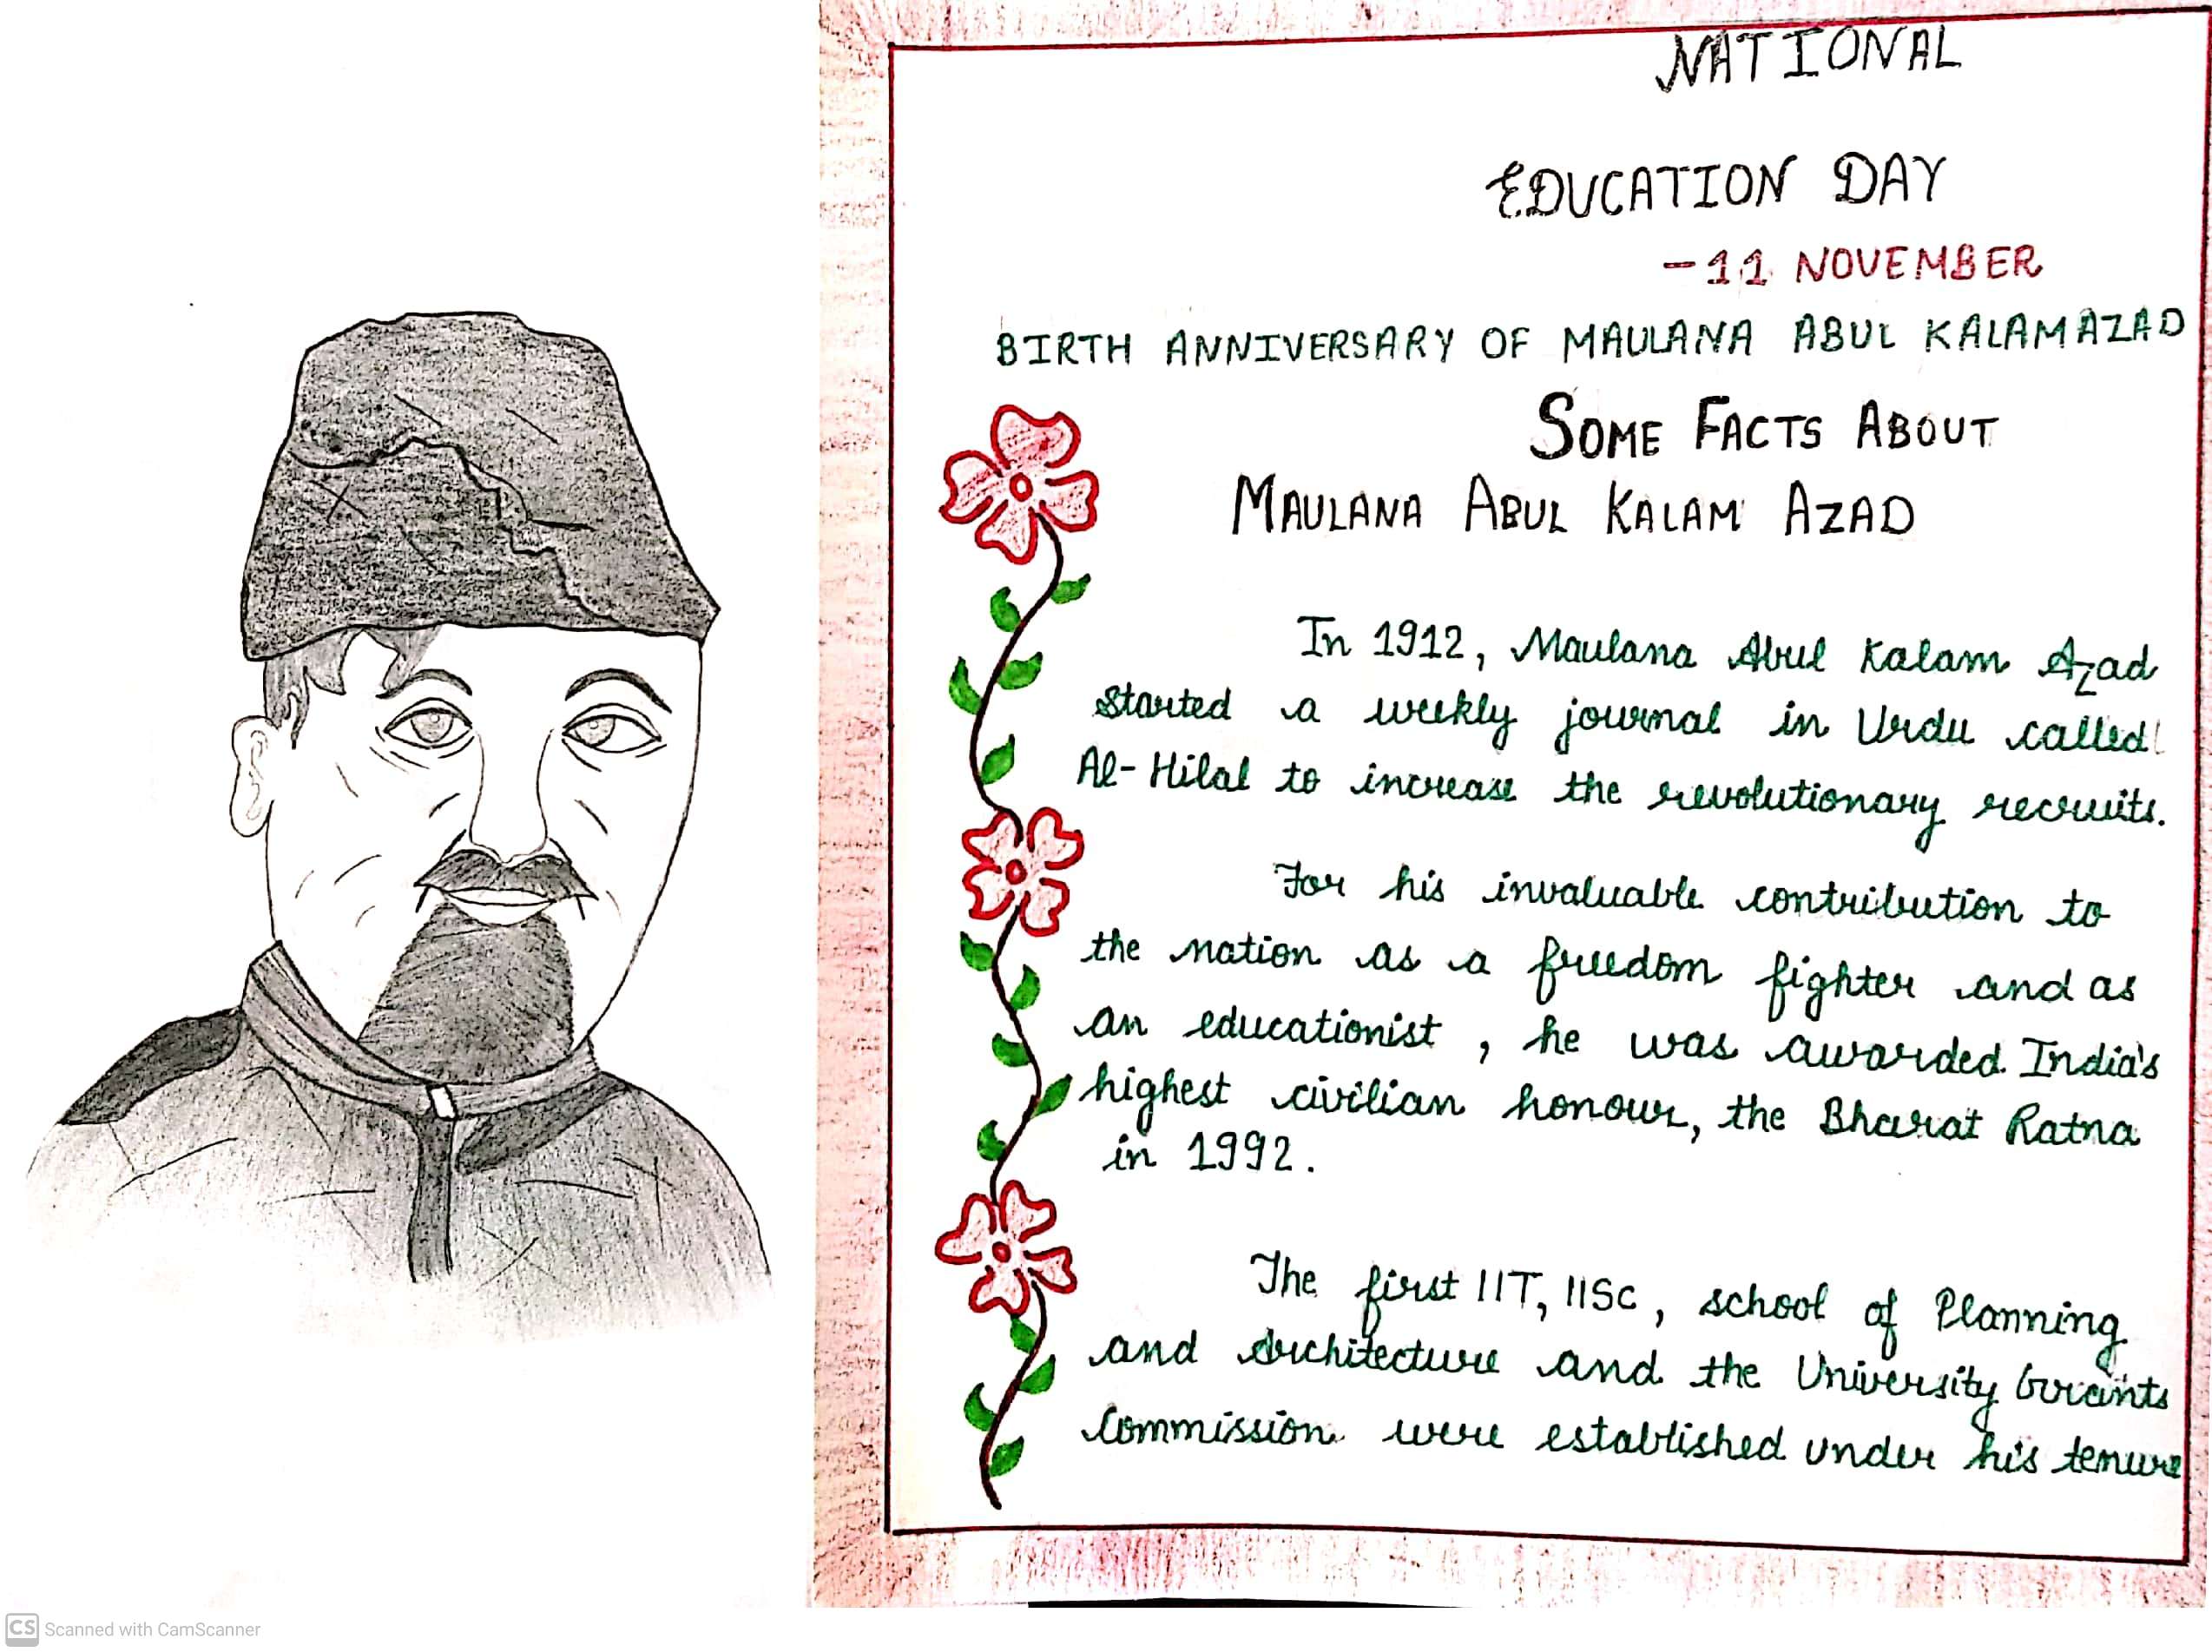 NATIONAL
EDUCATION DAY
-11 NOVEMBER
BIRTH ANNIVERSARY OF MAULANA ABUL KALAM AZAD
SOME FACTS ABOUT
MAULANA ABUL KALAM AZAD
In 1912, Maulana Abul Kalam Azad
started a weekly journal in Urdu called
Al-Hilal to increase the revolutionary recruits.
For his invaluable contribution to
the nation as a freedom fighter and as
an educationist, he was awarded India's
highest civilian honour, the Bharat Ratna
in 1992.
The first IIT, IISc, school of Planning
and Architecture and the University Grants
Commission were established under his tenure
CS Scanned with CamScanner